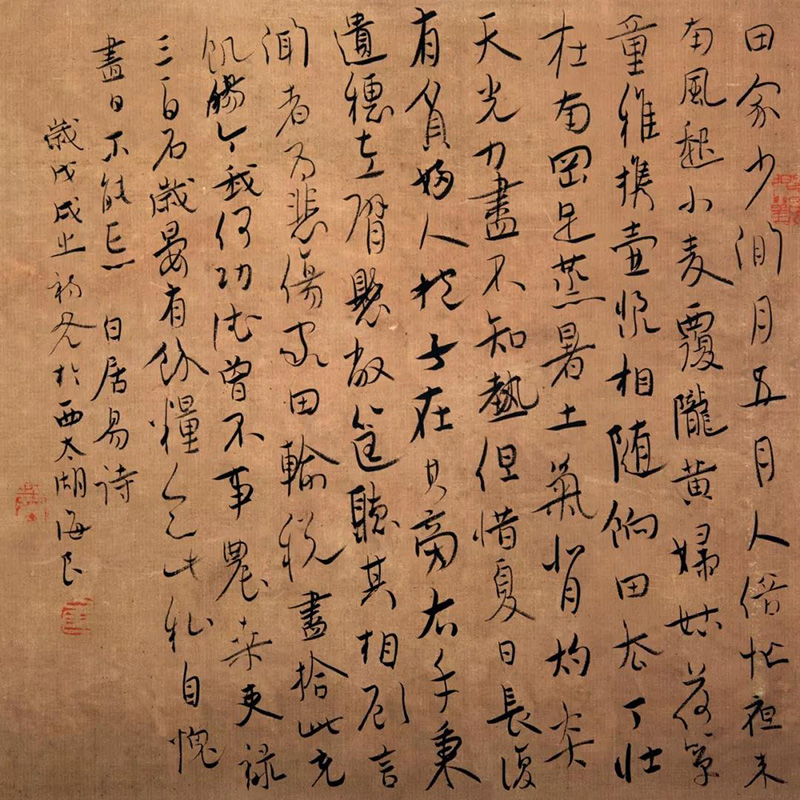 田家少閒月五月人倍忙夜来
南風起小麦覆隴黄婦姑荷簞
童稚携壷漿相随餉田去丁壮
在南岡足蒸暑土氣背灼炎
天光力盡不知熱但惜夏日長復
有貧婦人抱子在其旁右手秉
遺穗左臂懸敝筐聽其相顧言
聞者为悲傷家田輸税盡拾此充
飢腸今我何功德曾不事農桑吏禄
三百石歲晏有餘糧念此私自愧
盡日不能忘 白居易詩
歲戊戌之初冬於西太湖海良